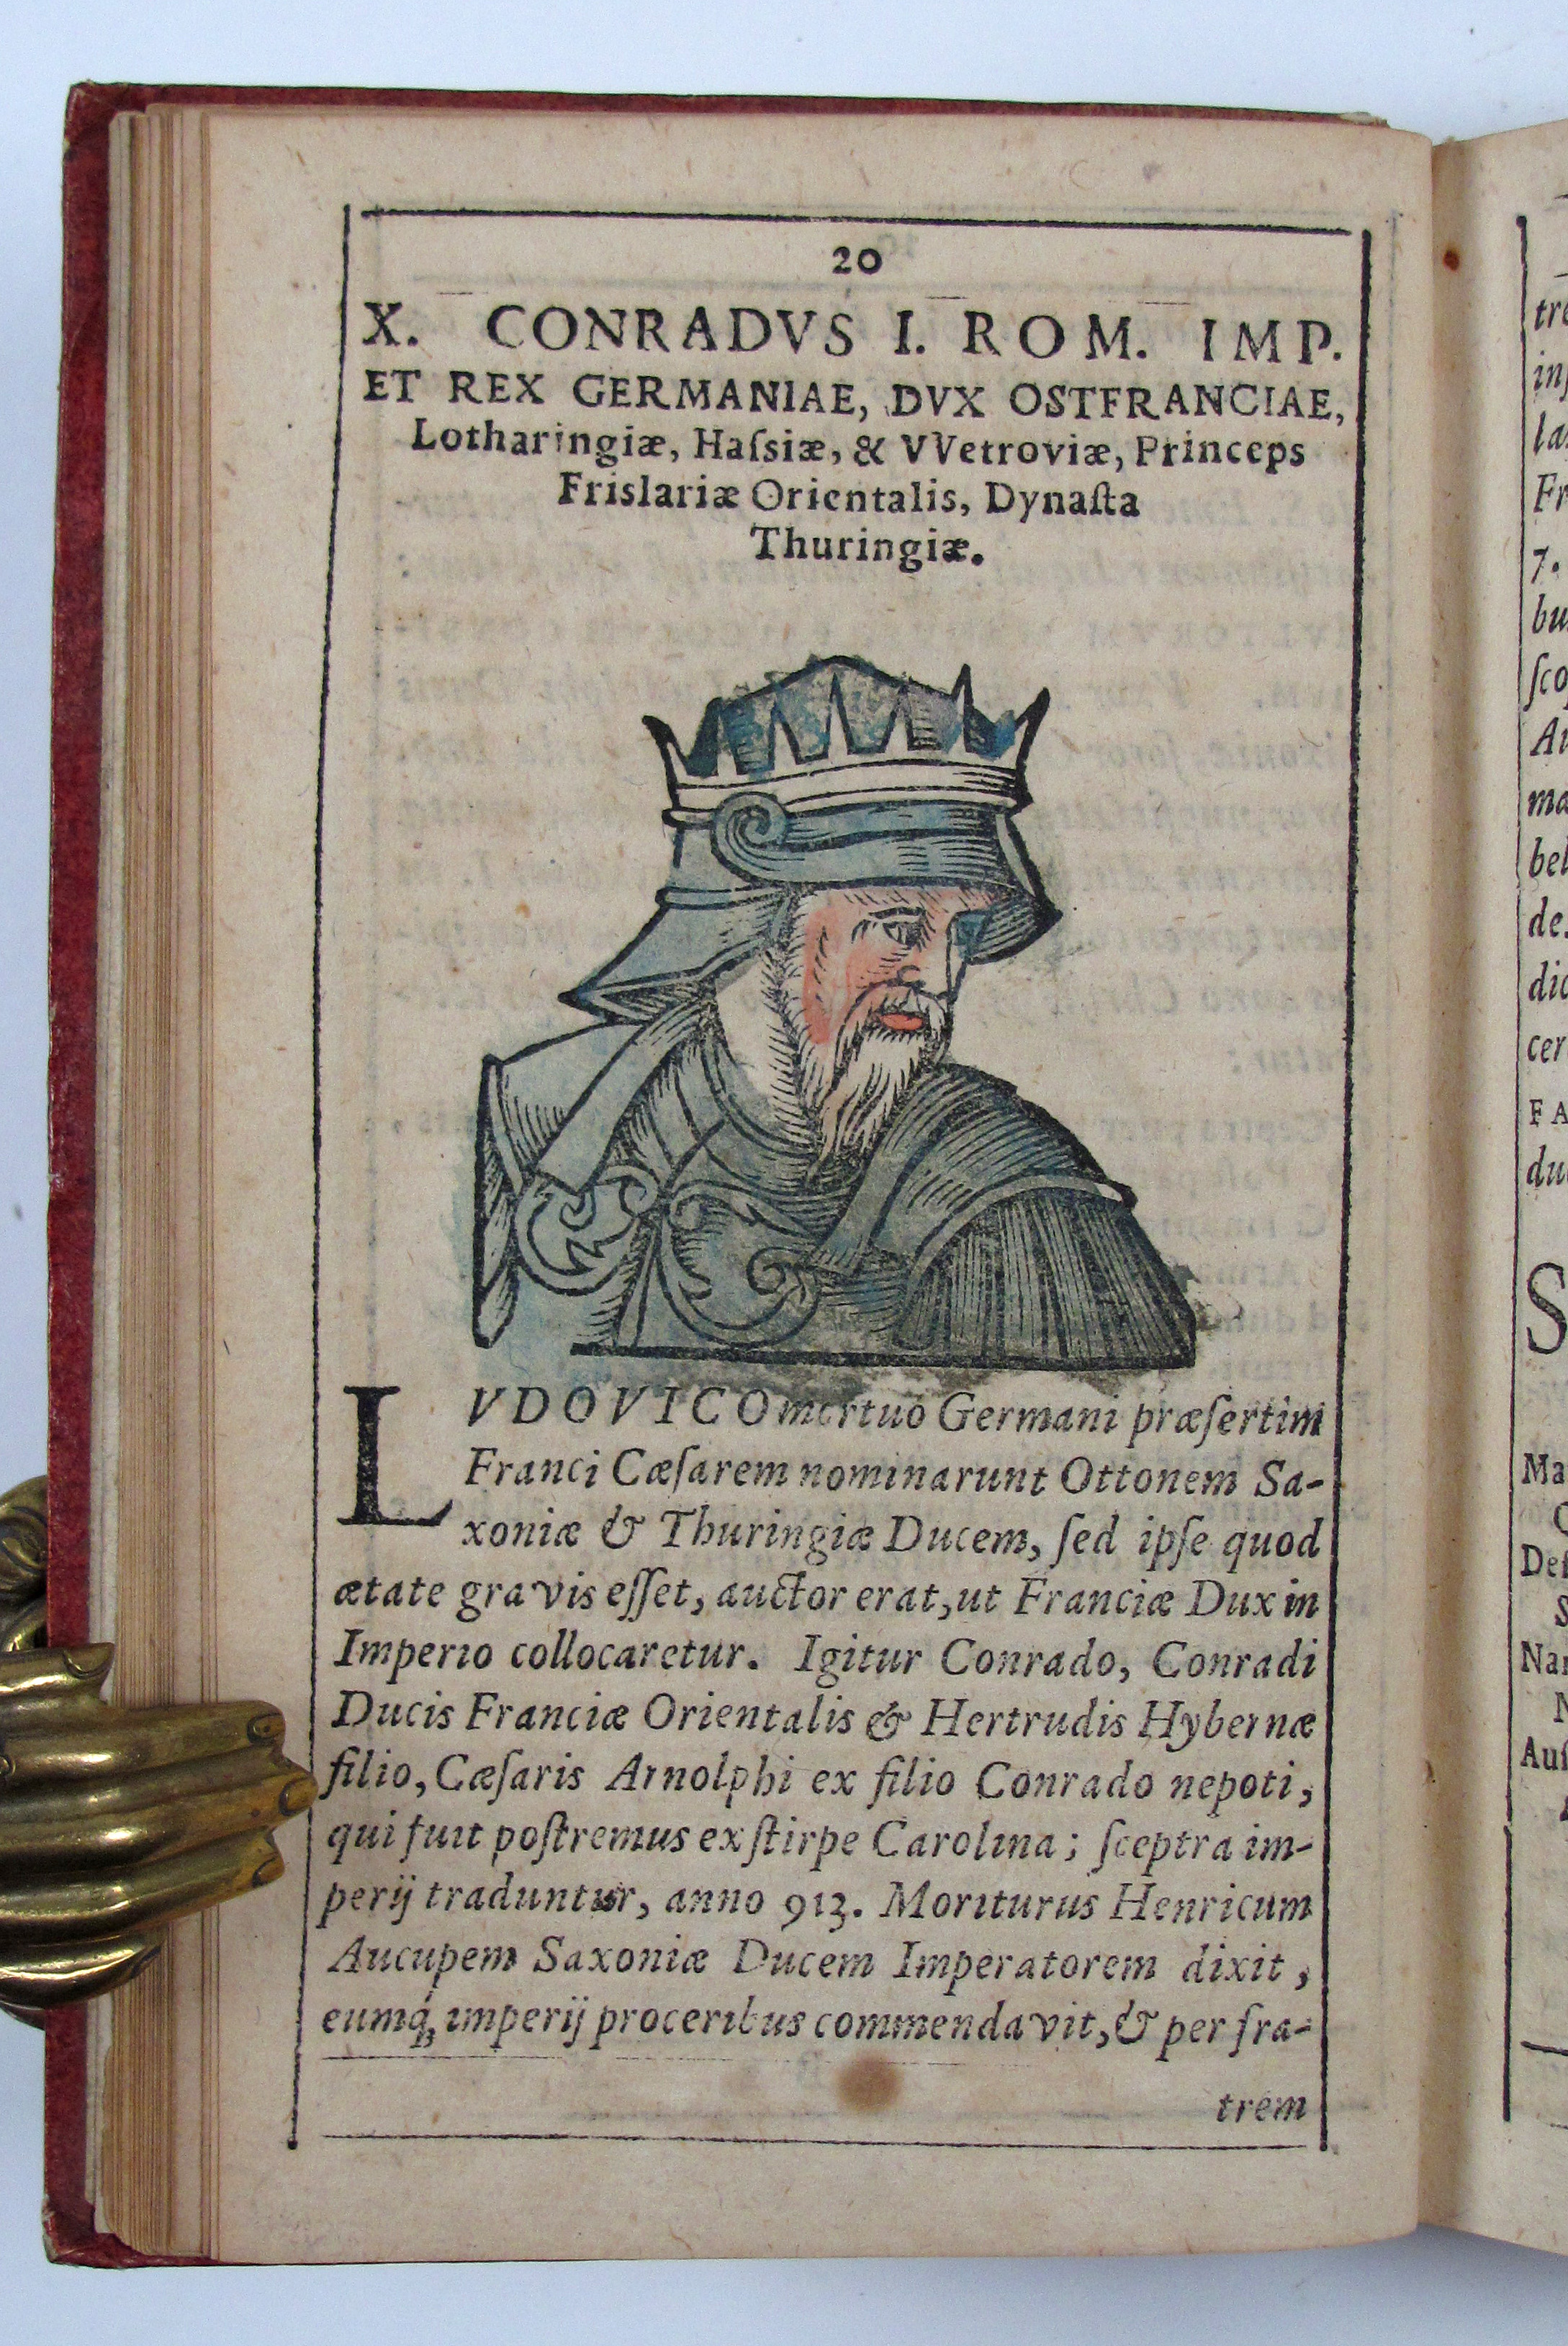 20
X. CONRADVS I. ROM. IMP.
ET REX GERMANIAE, DVX OSTFRANCIAE,
Lotharingiæ, Haſsiæ, & VVetroviæ, Princeps
Frislariæ Orientalis, Dynaſta
Thuringiæ.
LVDOVICO mortuo Germani præſertim
Franci Cæſarem nominarunt Ottonem Sa-
xoniæ & Thuringiæ Ducem, ſed ipſe quod
ætate gravis eſſet, auctor erat, ut Franciæ Dux in
Imperio collocaretur. Igitur Conrado, Conradi
Ducis Franciæ Orientalis & Hertrudis Hybernæ
filio, Cæſaris Arnolphi ex filio Conrado nepoti,
qui fuit poſtremus ex ſtirpe Carolina; ſceptra im-
perij traduntur, anno 913. Moriturus Henricum
Aucupem Saxoniæ Ducem Imperatorem dixit,
eumq́; imperij proceribus commendavit, & per fra-
trem
tre
Fr
7.
bu
ſco
ma
bel
de.
dic
cer
FA
du
S
Ma